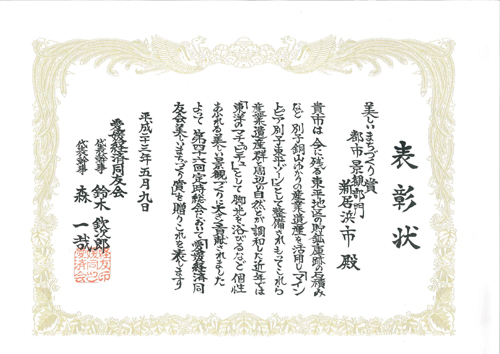 表彰状
美しいまちづくり賞
都市景観部門
新居浜市 殿
貴市は 今に残る東平地区の貯鉱庫跡の石積み
など 別子銅山ゆかりの産業遺産を活用し「マイン
トピア別子東平ゾーン」として整備されました これら
産業遺産群と周辺の自然とが調和した近年では
「東洋のマチュピチュ」として脚光を浴びるなど 個性
あふれる美しい景観づくりに大きく貢献されました
よって 第四十六回定時総会において「愛媛経済同
友会美しいまちづくり賞」を贈りこれを表します
平成二十三年五月九日
愛媛経済同友会
代表幹事 鈴木
代表幹事 森 一哉